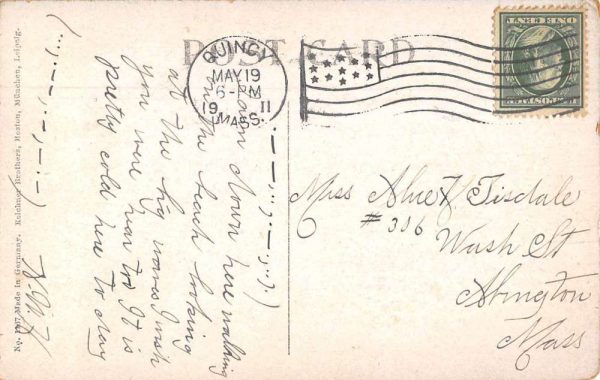 POST CARD
QUINCY
MAY 19
6-PM
19 11
MASS.
ONE CENT
am down here walking
on the beach looking
at the big waves I wish
you were near too It is
pretty cold here to day
Miss Alice Tisdale
# 336
Wash St
Abington
Mass
Made in Germany. Reichner Brothers, Boston, München, Leipzig.